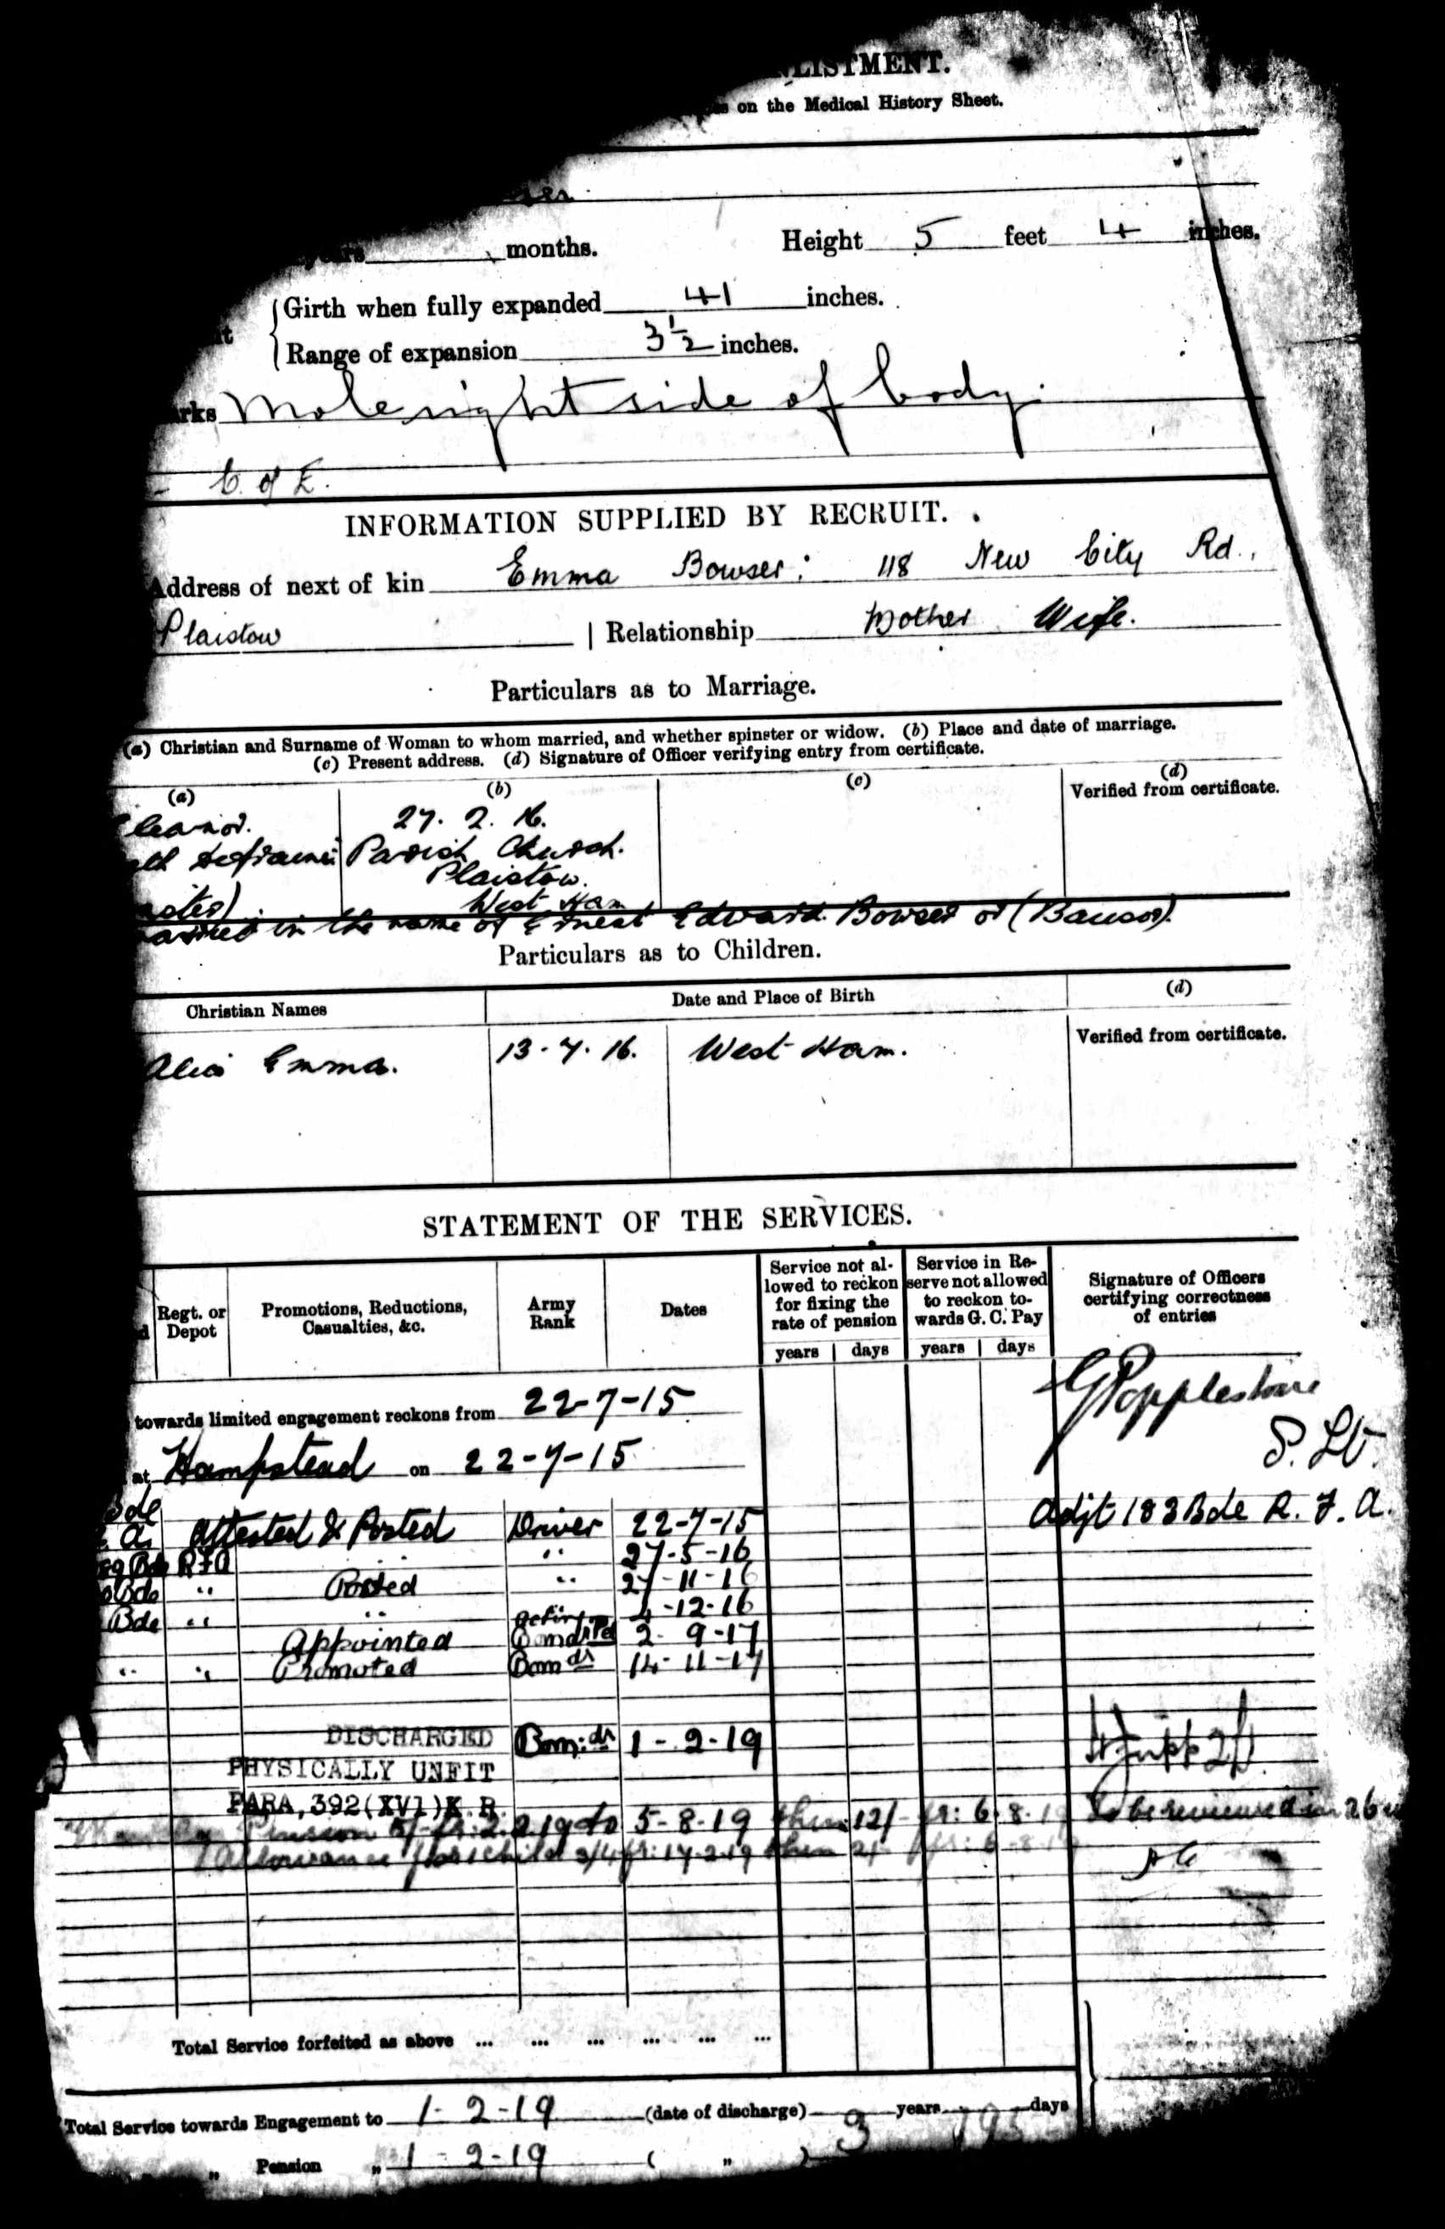 ENLISTMENT.
on the Medical History Sheet.
months. Height 5 feet 4 inches.
Girth when fully expanded 41 inches.
Range of expansion 3½ inches.
Mole right side of body.
C. of E.
INFORMATION SUPPLIED BY RECRUIT.
Address of next of kin Emma Bowser: 118 New City Rd.,
Plaistow | Relationship Mother Wife.
Particulars as to Marriage.
(a) Christian and Surname of Woman to whom married, and whether spinster or widow. (b) Place and date of marriage.
(c) Present address. (d) Signature of Officer verifying entry from certificate.
(a) (b) (c) (d)
Verified from certificate.
Eleanor. 27. 2. 16.
Parish Church.
Plaistow.
West Ham
in the name of Ernest Edward Bowser or (Bausor).
Particulars as to Children.
Christian Names Date and Place of Birth (d)
Verified from certificate.
Emma. 13-7-16. West Ham.
STATEMENT OF THE SERVICES.
Regt. or Depot Promotions, Reductions, Casualties, &c. Army Rank Dates Service not allowed to reckon for fixing the rate of pension Service in Reserve not allowed to reckon towards G. C. Pay Signature of Officers certifying correctness of entries
years days years days
towards limited engagement reckons from 22-7-15 G Popplestone
at Hampstead on 22-7-15 S. Lt.
Bde
Attested & Posted Driver 22-7-15 Adjt 183 Bde R. F. A.
Bde RFA " 27-5-16
Bde " Posted " 27-11-16
Bde " " " 4-12-16
Appointed Acting Bombr Pd 2-9-17
" " Promoted Bomdr 14-11-17
DISCHARGED Bomdr 1-2-19
PHYSICALLY UNFIT
PARA, 392(XVI)K.R.
Pension 2.2.19 to 5-8-19 then 12/- fr: 6.8.19 To be reviewed in 26
Allowance for child 3/4 fr: 17-2-19 then 2/ fr: 6-8-19
Total Service forfeited as above ... ... ... ... ... ...
Total Service towards Engagement to 1-2-19 (date of discharge) 3 years 195 days
" Pension " 1-2-19 ( " )